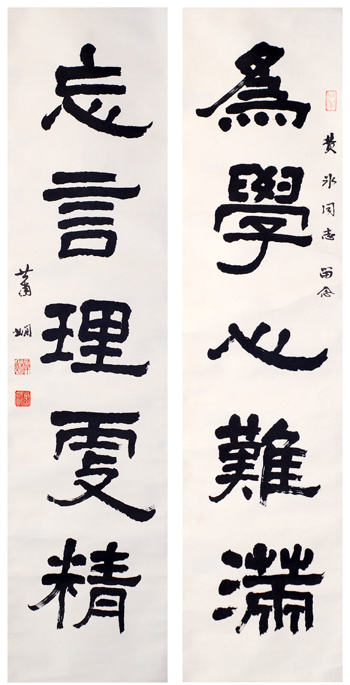 為學心難滿
冰同志 留念
忘言理更精
蕭嫻